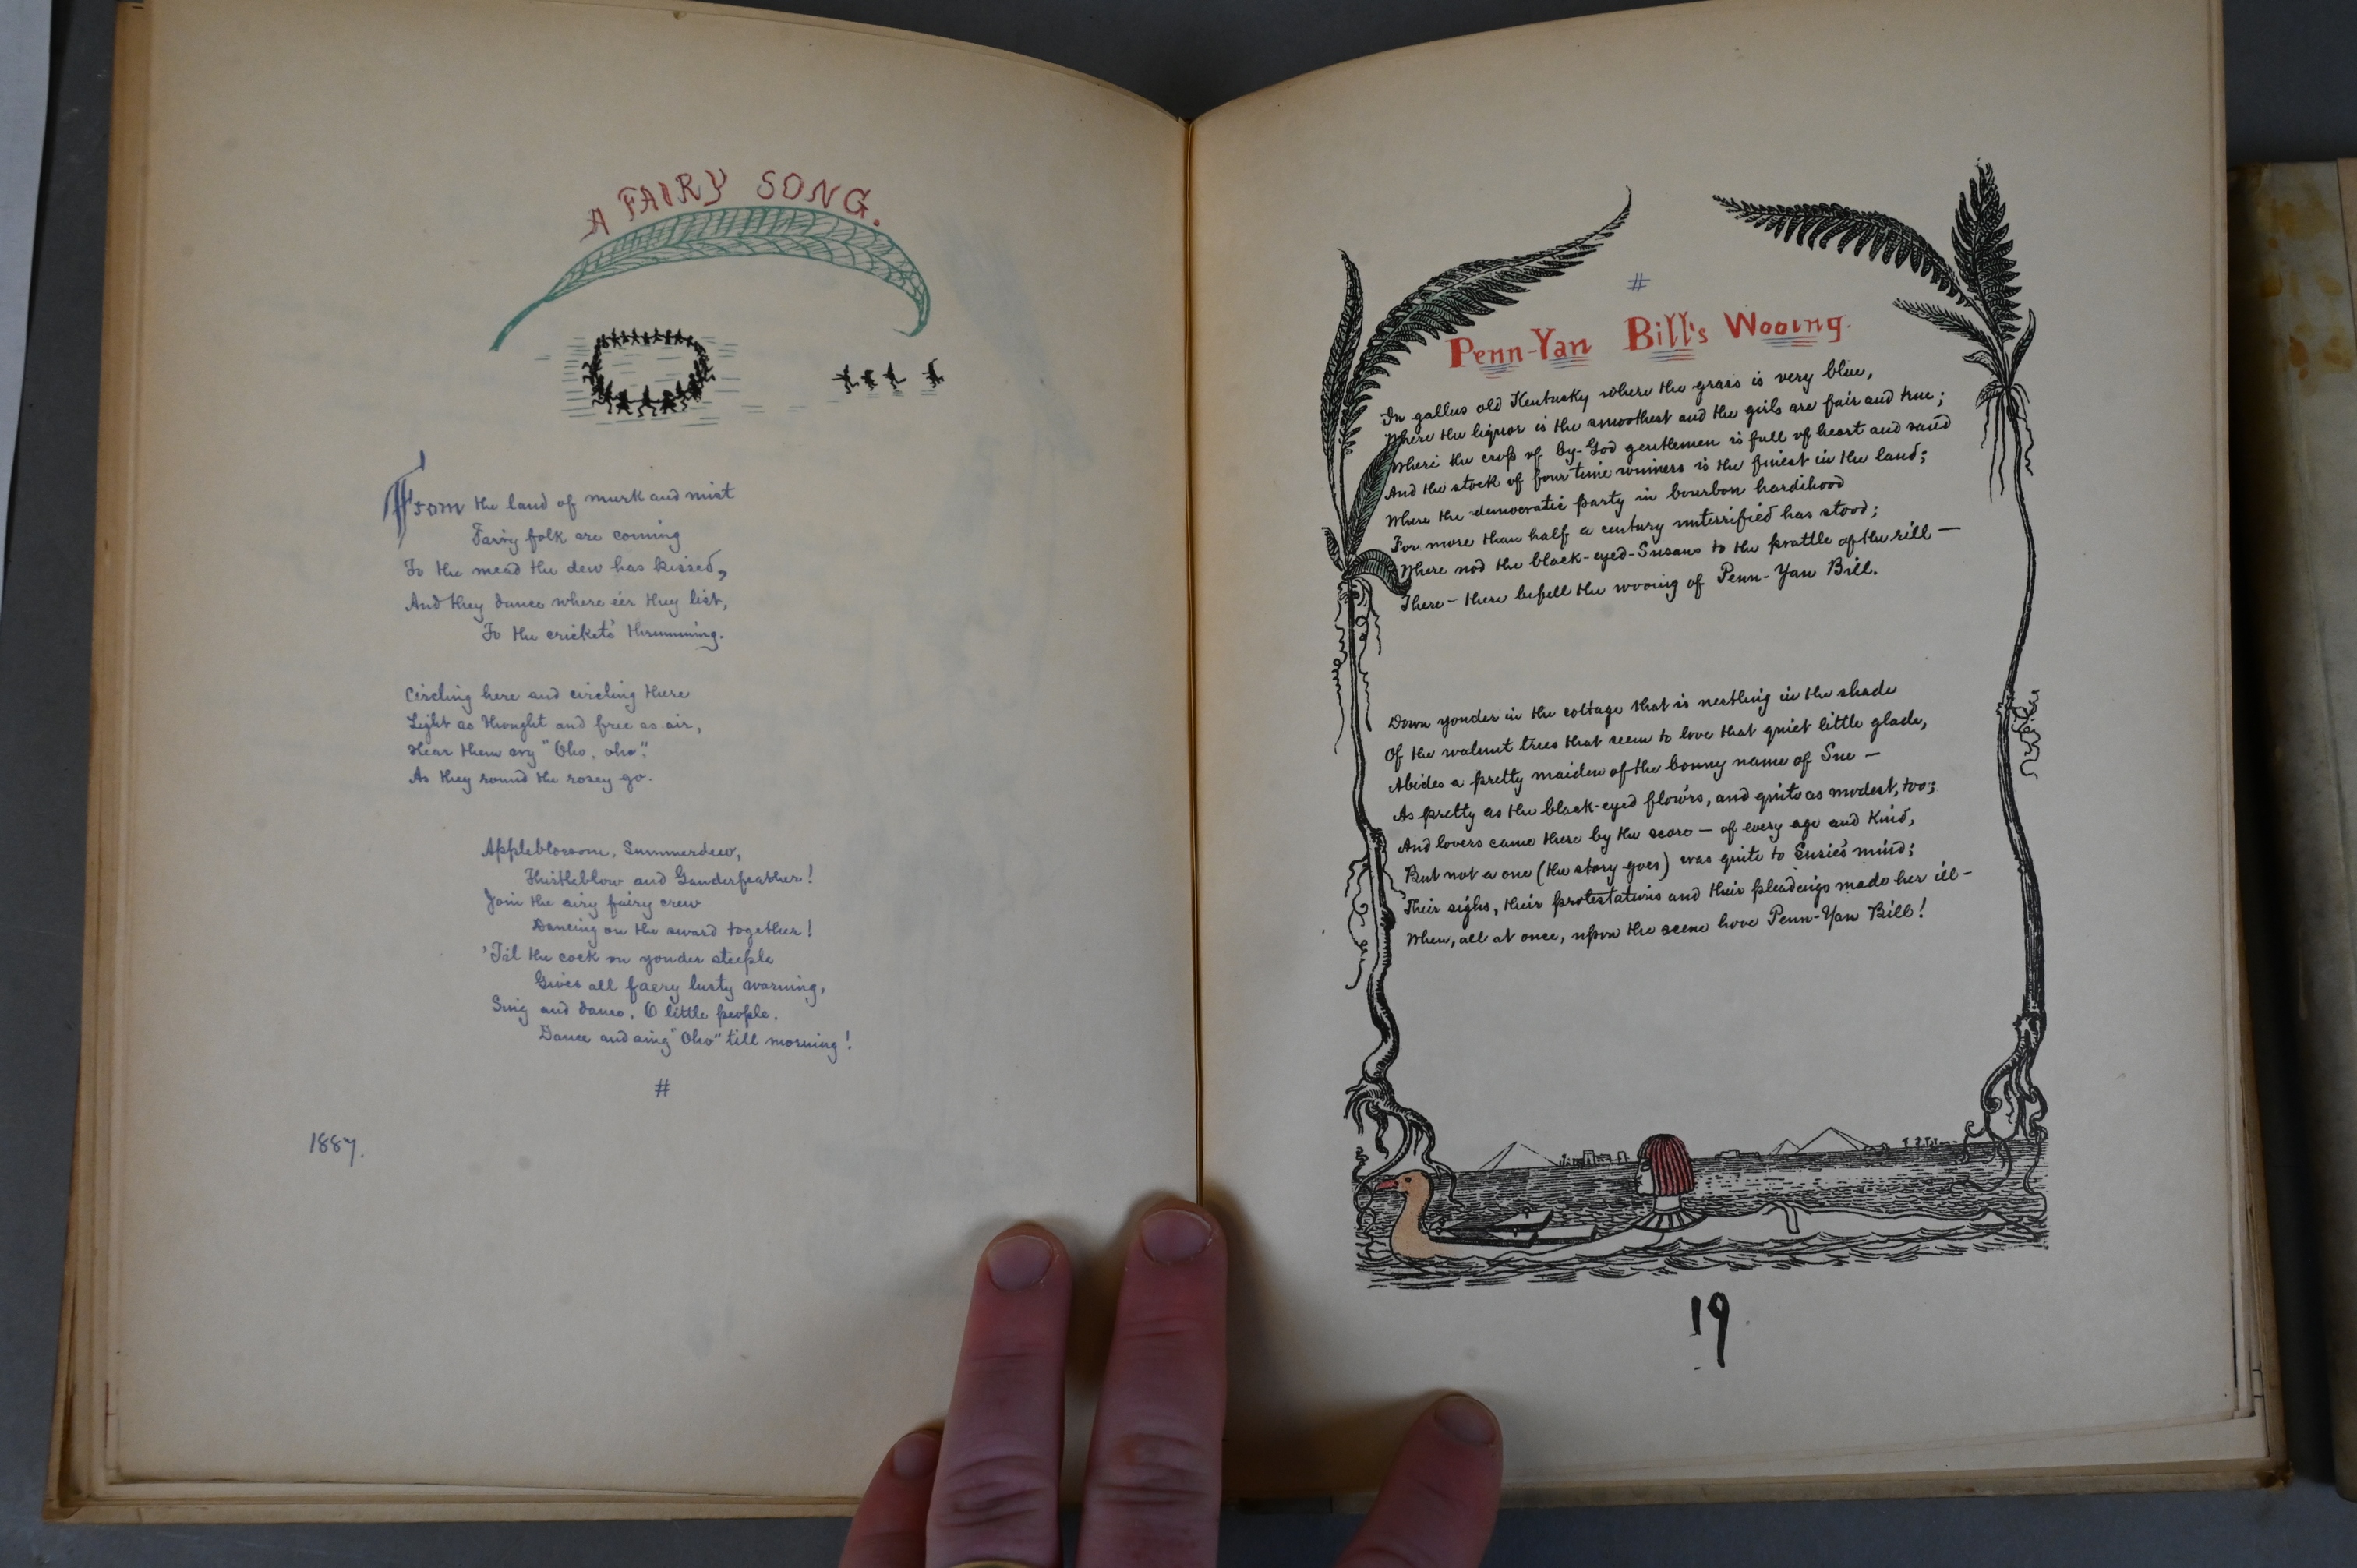 A FAIRY SONG.
From the land of murk and mist
Fairy folk are coming
To the mead the dew has kissed,
And they dance where e'er they list,
To the crickets' thrumming.
Circling here and circling there
Light as thought and free as air,
Hear them cry "Oho, oho",
As they round the rosey go.
Appleblossom, Summerdew,
Thistleblow and Ganderfeather!
Join the airy fairy crew
Dancing on the sward together!
'Til the cock on yonder steeple
Gives all faery lusty warning,
Sing and dance, O little people.
Dance and sing "Oho" till morning!
#
1887.
#
Penn-Yan Bill's Wooing.
In gallus old Kentucky where the grass is very blue,
Where the liquor is the smoothest and the girls are fair and true;
Where the crop of by-God gentlemen is full of heart and sand
And the stock of four time winners is the finest in the land;
Where the democratic party in bourbon hardihood
For more than half a century unterrified has stood;
Where nod the black-eyed-Susans to the prattle of the rill —
There - there befell the wooing of Penn-Yan Bill.
Down yonder in the cottage that is nestling in the shade
Of the walnut trees that seem to love that quiet little glade,
Abides a pretty maiden of the bonny name of Sue —
As pretty as the black-eyed flow'rs, and quite as modest, too;
And lovers came there by the score — of every age and kind,
But not a one (the story goes) was quite to Susie's mind;
Their sighs, their protestations and their pleadings made her ill -
When, all at once, upon the scene hove Penn-Yan Bill!
19